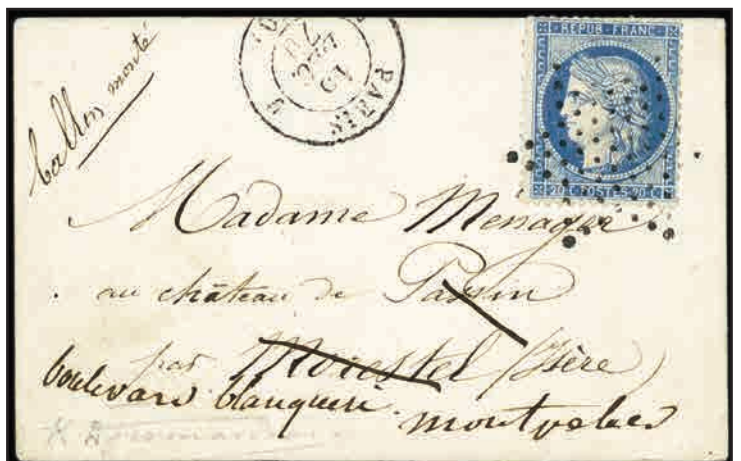 ballon monté
PARIS
DEC.
70
REPUB·FRANC
20·C POSTES 20·C
Madame Menager
au château de Passin
par Morestel (Isère)
boulevard blanquerie montpelier